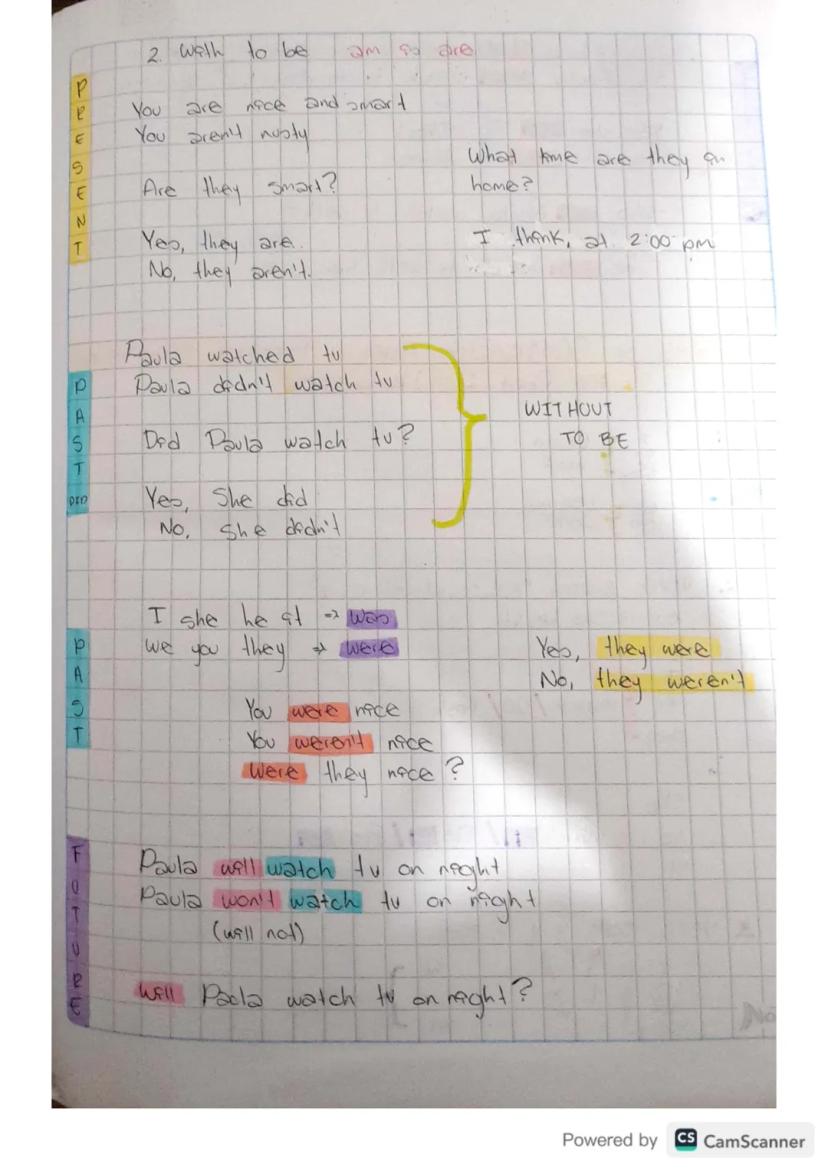 2. With to be am is are
PRESENT
You are nice and smart
You aren't nusty
Are they smart?
Yes, they are.
No, they aren't.
What time are they in
home?
I think, at 2:00 pm
PAST DID
Paula watched tv
Paula didn't watch tv
Did Paula watch tv?
Yes, She did
No, She didn't
WITHOUT
TO BE
PAST
I she he it → was
we you they → were
Yes, they were
No, they weren't
You were nice
You weren't nice
Were they nice?
FUTURE
Paula will watch tv on night
Paula won't watch tv on night
(will not)
Will Paula watch tv on night?
No
Powered by CS CamScanner